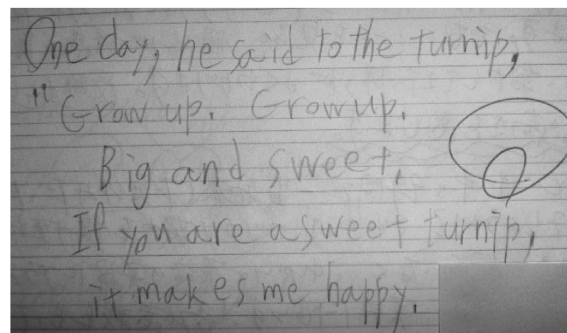 One day, he said to the turnip,
"Grow up. Grow up.
Big and sweet.
If you are a sweet turnip,
it makes me happy.